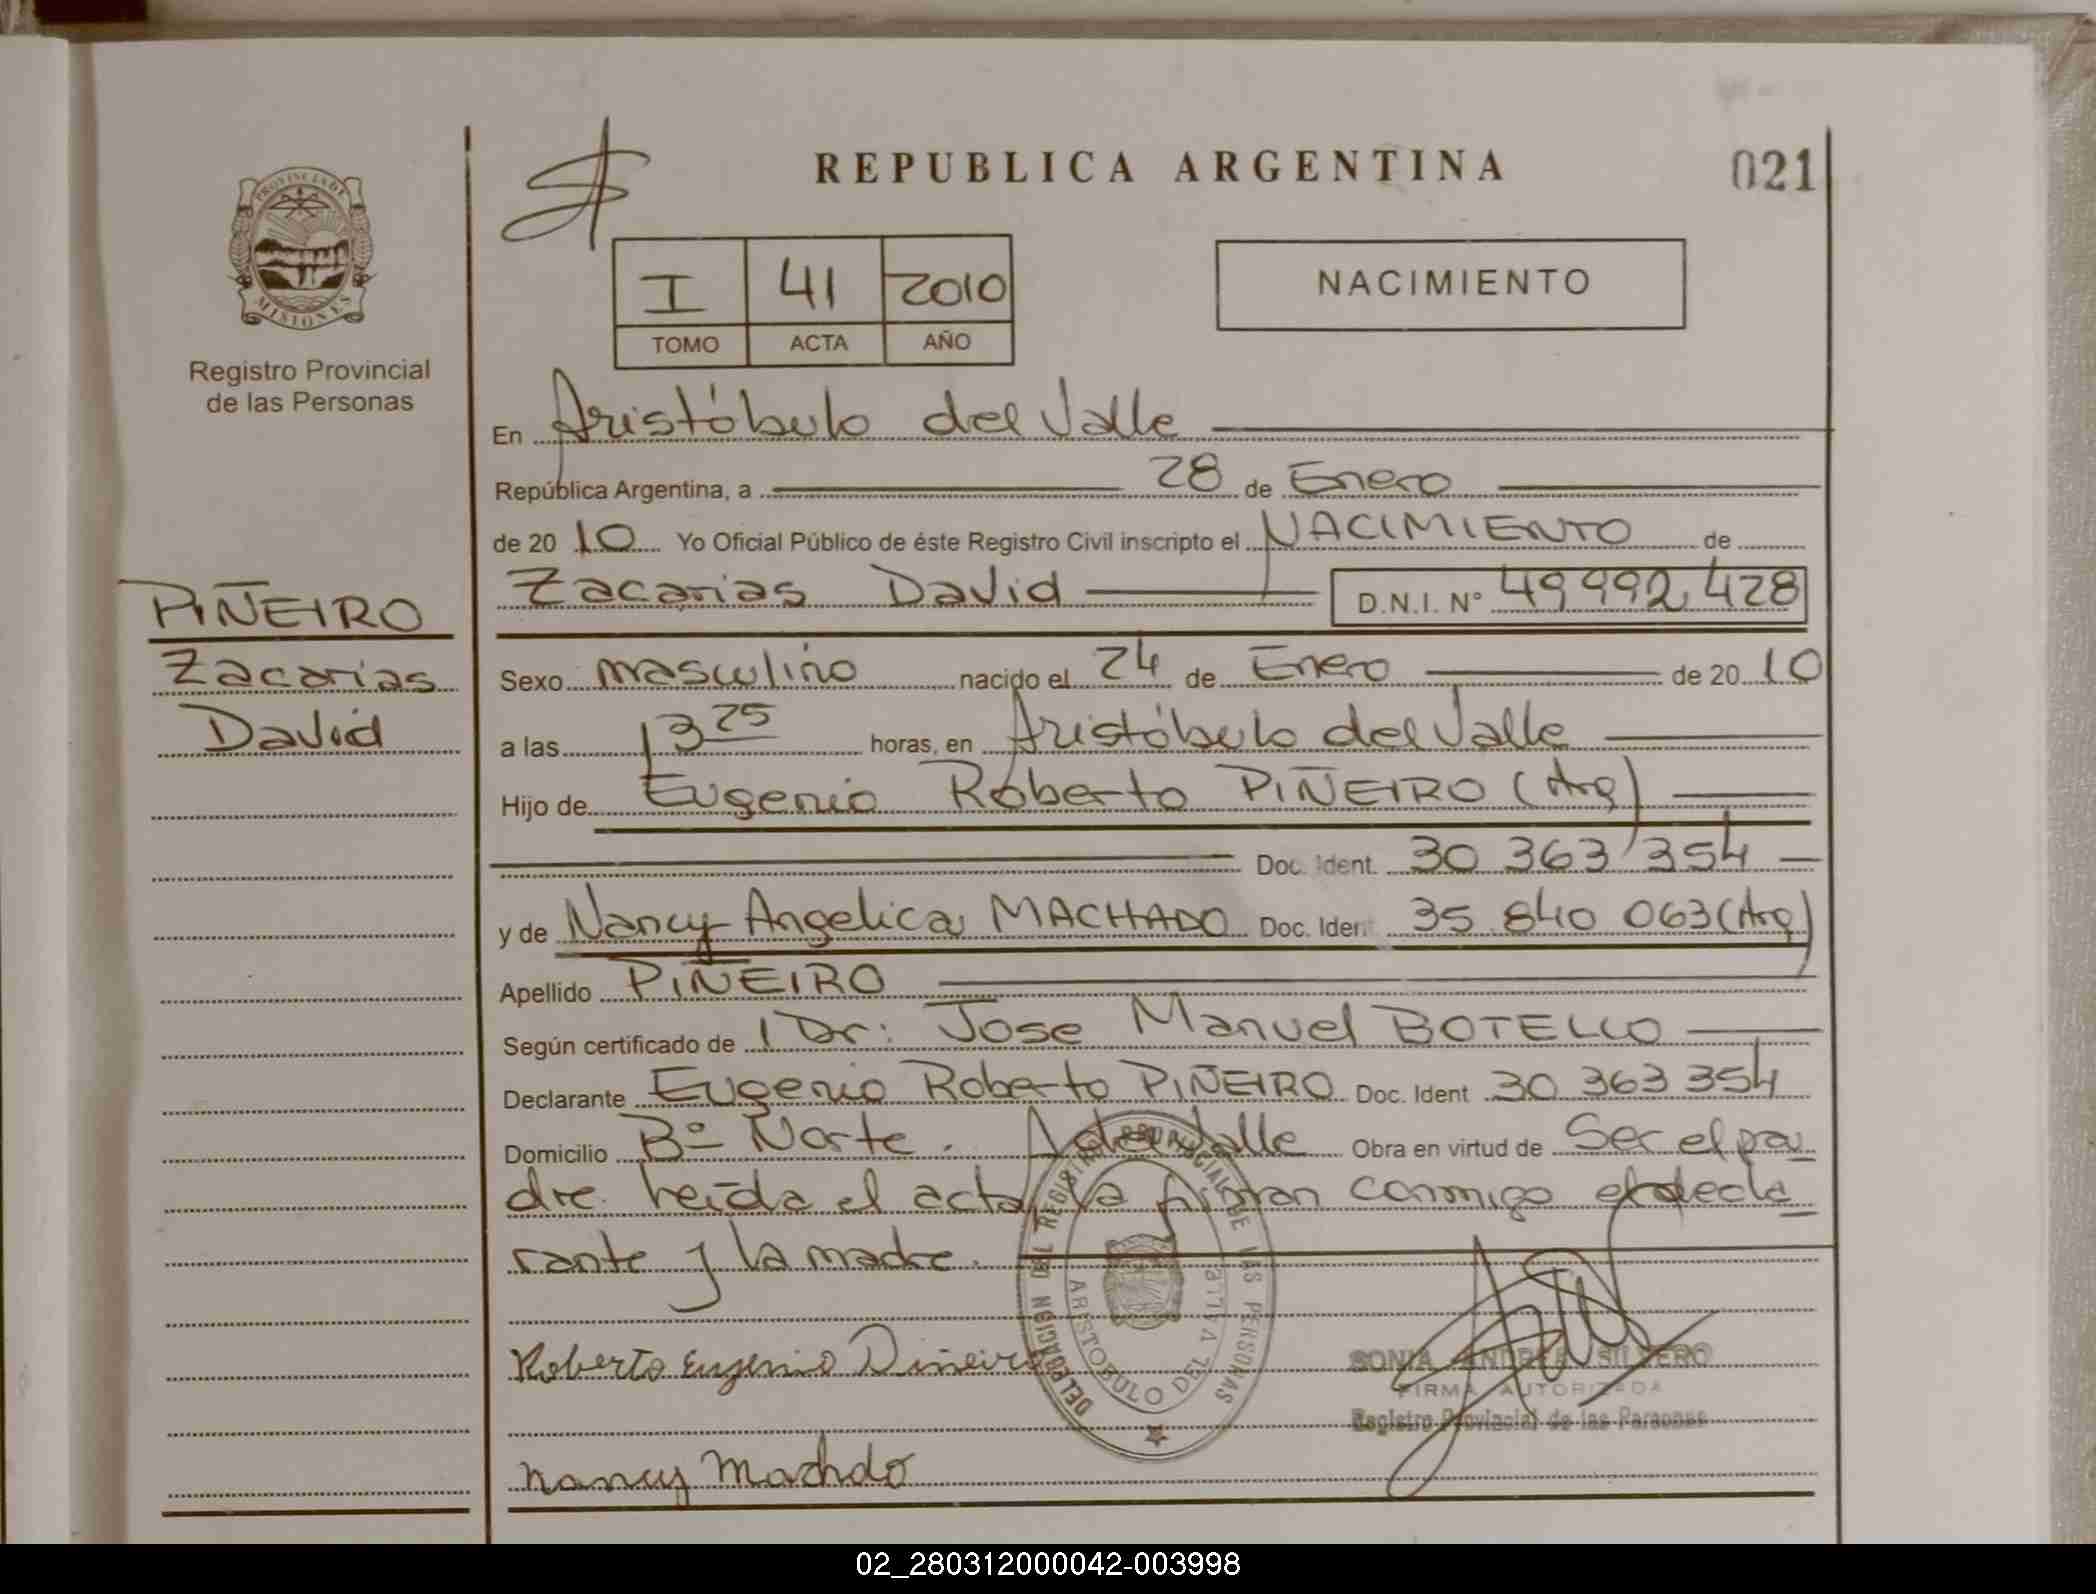 REPUBLICA ARGENTINA
021
PROVINCIA DE
MISIONES
Registro Provincial
de las Personas
I 41 2010
TOMO ACTA AÑO
NACIMIENTO
En Aristóbulo del Valle
República Argentina, a 28 de Enero
de 2010 Yo Oficial Público de éste Registro Civil inscripto el NACIMIENTO de
Zacarias David D.N.I. N° 49 992 428
PIÑEIRO
Zacarias
David
Sexo masculino nacido el 24 de Enero de 2010
a las 13 25 horas, en Aristóbulo del Valle
Hijo de Eugenio Roberto PIÑEIRO (Arg)
Doc. Ident. 30 363 354
y de Nancy Angelica MACHADO Doc. Ident 35 840 063 (Arg)
Apellido PIÑEIRO
Según certificado de Dr: Jose Manuel BOTELLO
Declarante Eugenio Roberto PIÑEIRO Doc. Ident 30 363 354
Domicilio Bº Norte. A del Valle Obra en virtud de Ser el pa
dre. Leida el acta la firman conmigo el decla
rante y la madre.
DELEGACION DEL REGISTRO PROVINCIAL DE LAS PERSONAS
ARISTOBULO DEL VALLE
Roberto Eugenio Piñeiro
SONIA ANDREA SILVERO
FIRMA AUTORIZADA
Registro Provincial de las Personas
Nancy Machado
02_280312000042-003998